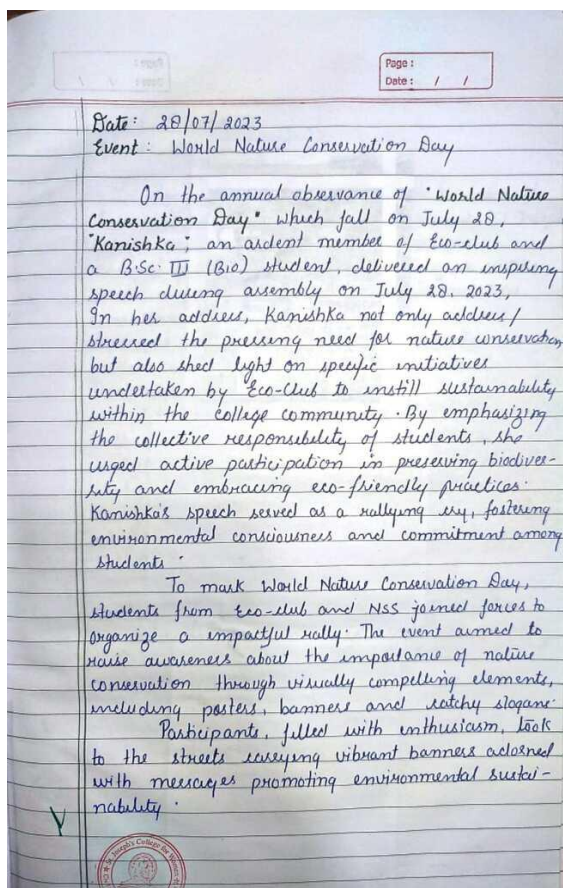 Page :
Date : / /
Date : 28/07/2023
Event : World Nature Conservation Day
On the annual observance of "World Nature
Conservation Day" which fall on July 28,
"Kanishka", an ardent member of Eco-club and
a B.Sc. III (Bio) student, delivered an inspiring
speech during assembly on July 28. 2023,
In her address, Kanishka not only address/
stressed the pressing need for nature conservation
but also shed light on specific initiatives
undertaken by Eco-Club to instill sustainability
within the college community. By emphasizing
the collective responsibility of students, she
urged active participation in preserving biodiver-
sity and embracing eco-friendly practices.
Kanishka's speech served as a rallying cry, fostering
environmental consciousness and commitment among
students.
To mark World Nature Conservation Day,
students from Eco-club and NSS joined forces to
organize a impactful rally. The event aimed to
raise awareness about the importance of nature
conservation through visually compelling elements,
including posters, banners and catchy slogans.
Participants, filled with enthusiasm, took
to the streets carrying vibrant banners adorned
with messages promoting environmental sustai-
nability.
St. Joseph's College for Women